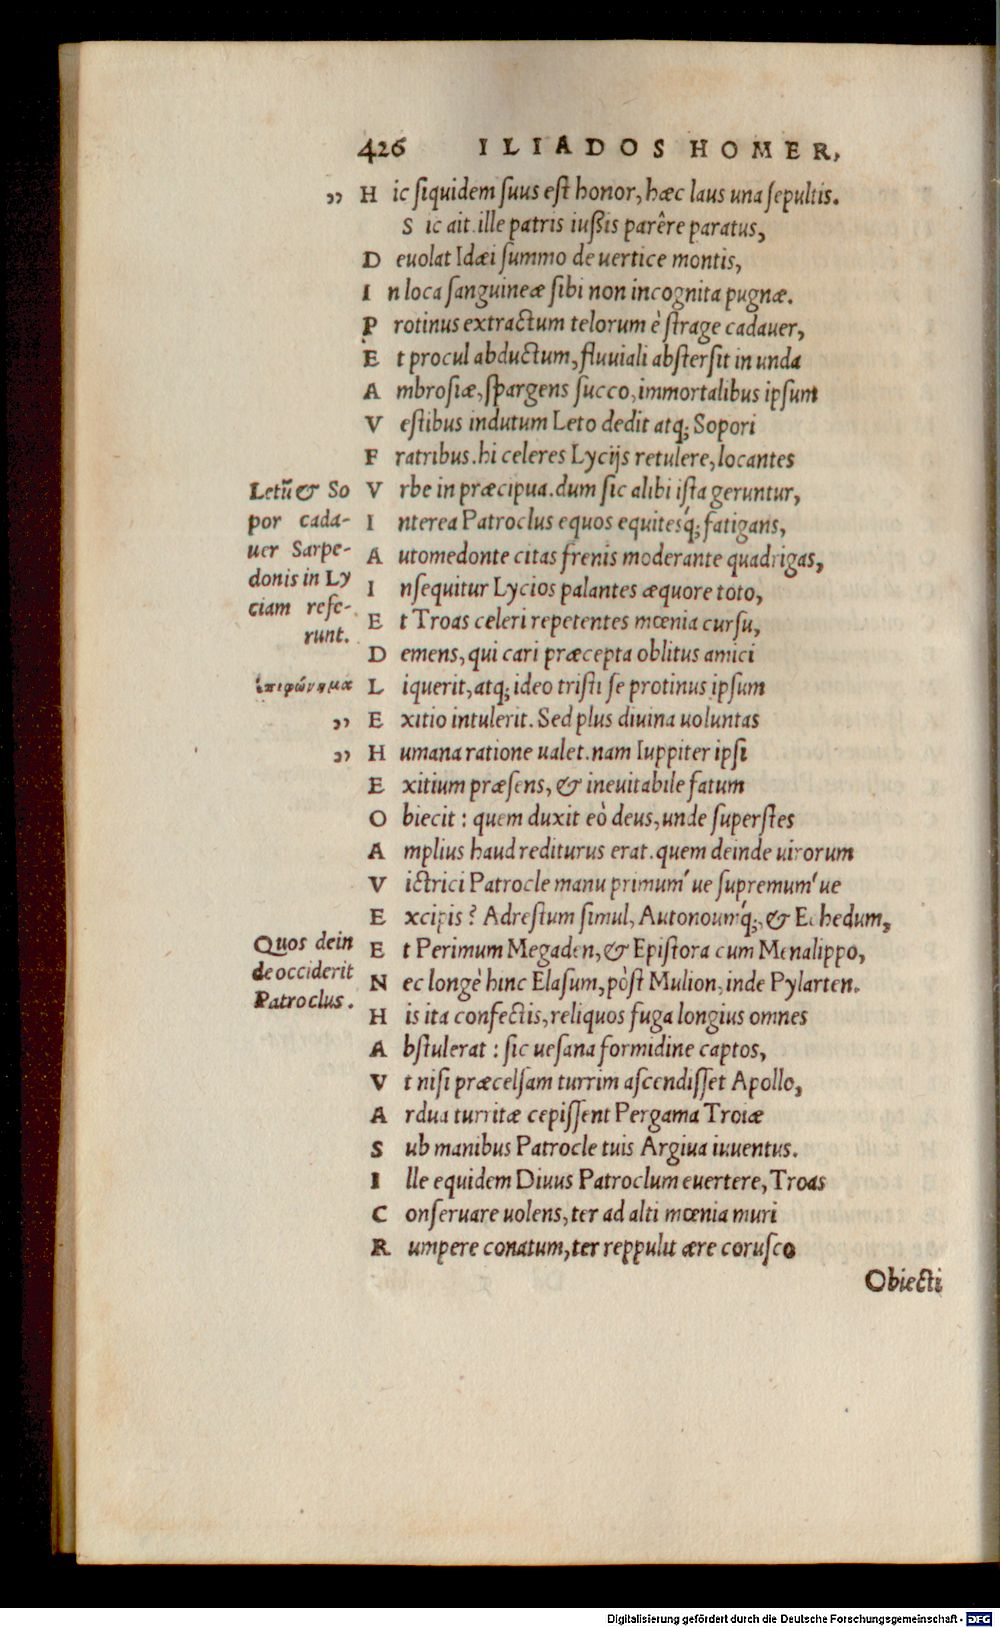 426 ILIADOS HOMER,
„ Hic siquidem suus est honor, hæc laus una sepultis.
Sic ait. ille patris iußis parêre paratus,
Deuolat Idæi summo de uertice montis,
In loca sanguineæ sibi non incognita pugnæ.
Protinus extractum telorum è strage cadauer,
Et procul abductum, fluuiali abstersit in unda
Ambrosiæ, spargens succo, immortalibus ipsum
Vestibus indutum Leto dedit atq; Sopori
Fratribus. hi celeres Lycijs retulere, locantes
Vrbe in præcipua. dum sic alibi ista geruntur,
Interea Patroclus equos equitesq́; fatigans,
Automedonte citas frenis moderante quadrigas,
Insequitur Lycios palantes æquore toto,
Et Troas celeri repetentes mœnia cursu,
Demens, qui cari præcepta oblitus amici
Liquerit, atq; ideo tristi se protinus ipsum
„ Exitio intulerit. Sed plus diuina uoluntas
„ Humana ratione ualet. nam Iuppiter ipsi
Exitium præsens, & ineuitabile fatum
Obiecit: quem duxit eò deus, unde superstes
Amplius haud rediturus erat. quem deinde uirorum
Victrici Patrocle manu primum´ue supremum´ue
Excipis? Adrestum simul, Autonoumq́;, & Echedum,
Et Perimum Megaden, & Epistora cum Menalippo,
Nec longè hinc Elasum, pòst Mulion, inde Pylarten.
His ita confectis, reliquos fuga longius omnes
Abstulerat: sic uesana formidine captos,
Vt nisi præcelsam turrim ascendisset Apollo,
Ardua turritæ cepissent Pergama Troiæ
Sub manibus Patrocle tuis Argiua iuuentus.
Ille equidem Diuus Patroclum euertere, Troas
Conseruare uolens, ter ad alti mœnia muri
Rumpere conatum, ter reppulit ære corusco
Obiecti
Letũ & So
por cada-
uer Sarpe-
donis in Ly
ciam refe-
runt.
ἐπιφώνημα
Quos dein
de occiderit
Patroclus.
Digitalisierung gefördert durch die Deutsche Forschungsgemeinschaft - DFG